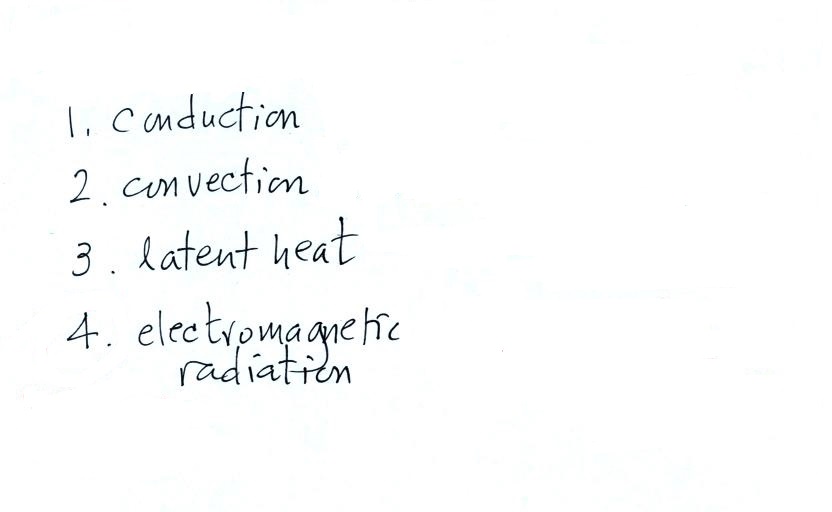 1. conduction
2. convection
3. latent heat
4. electromagnetic
radiation